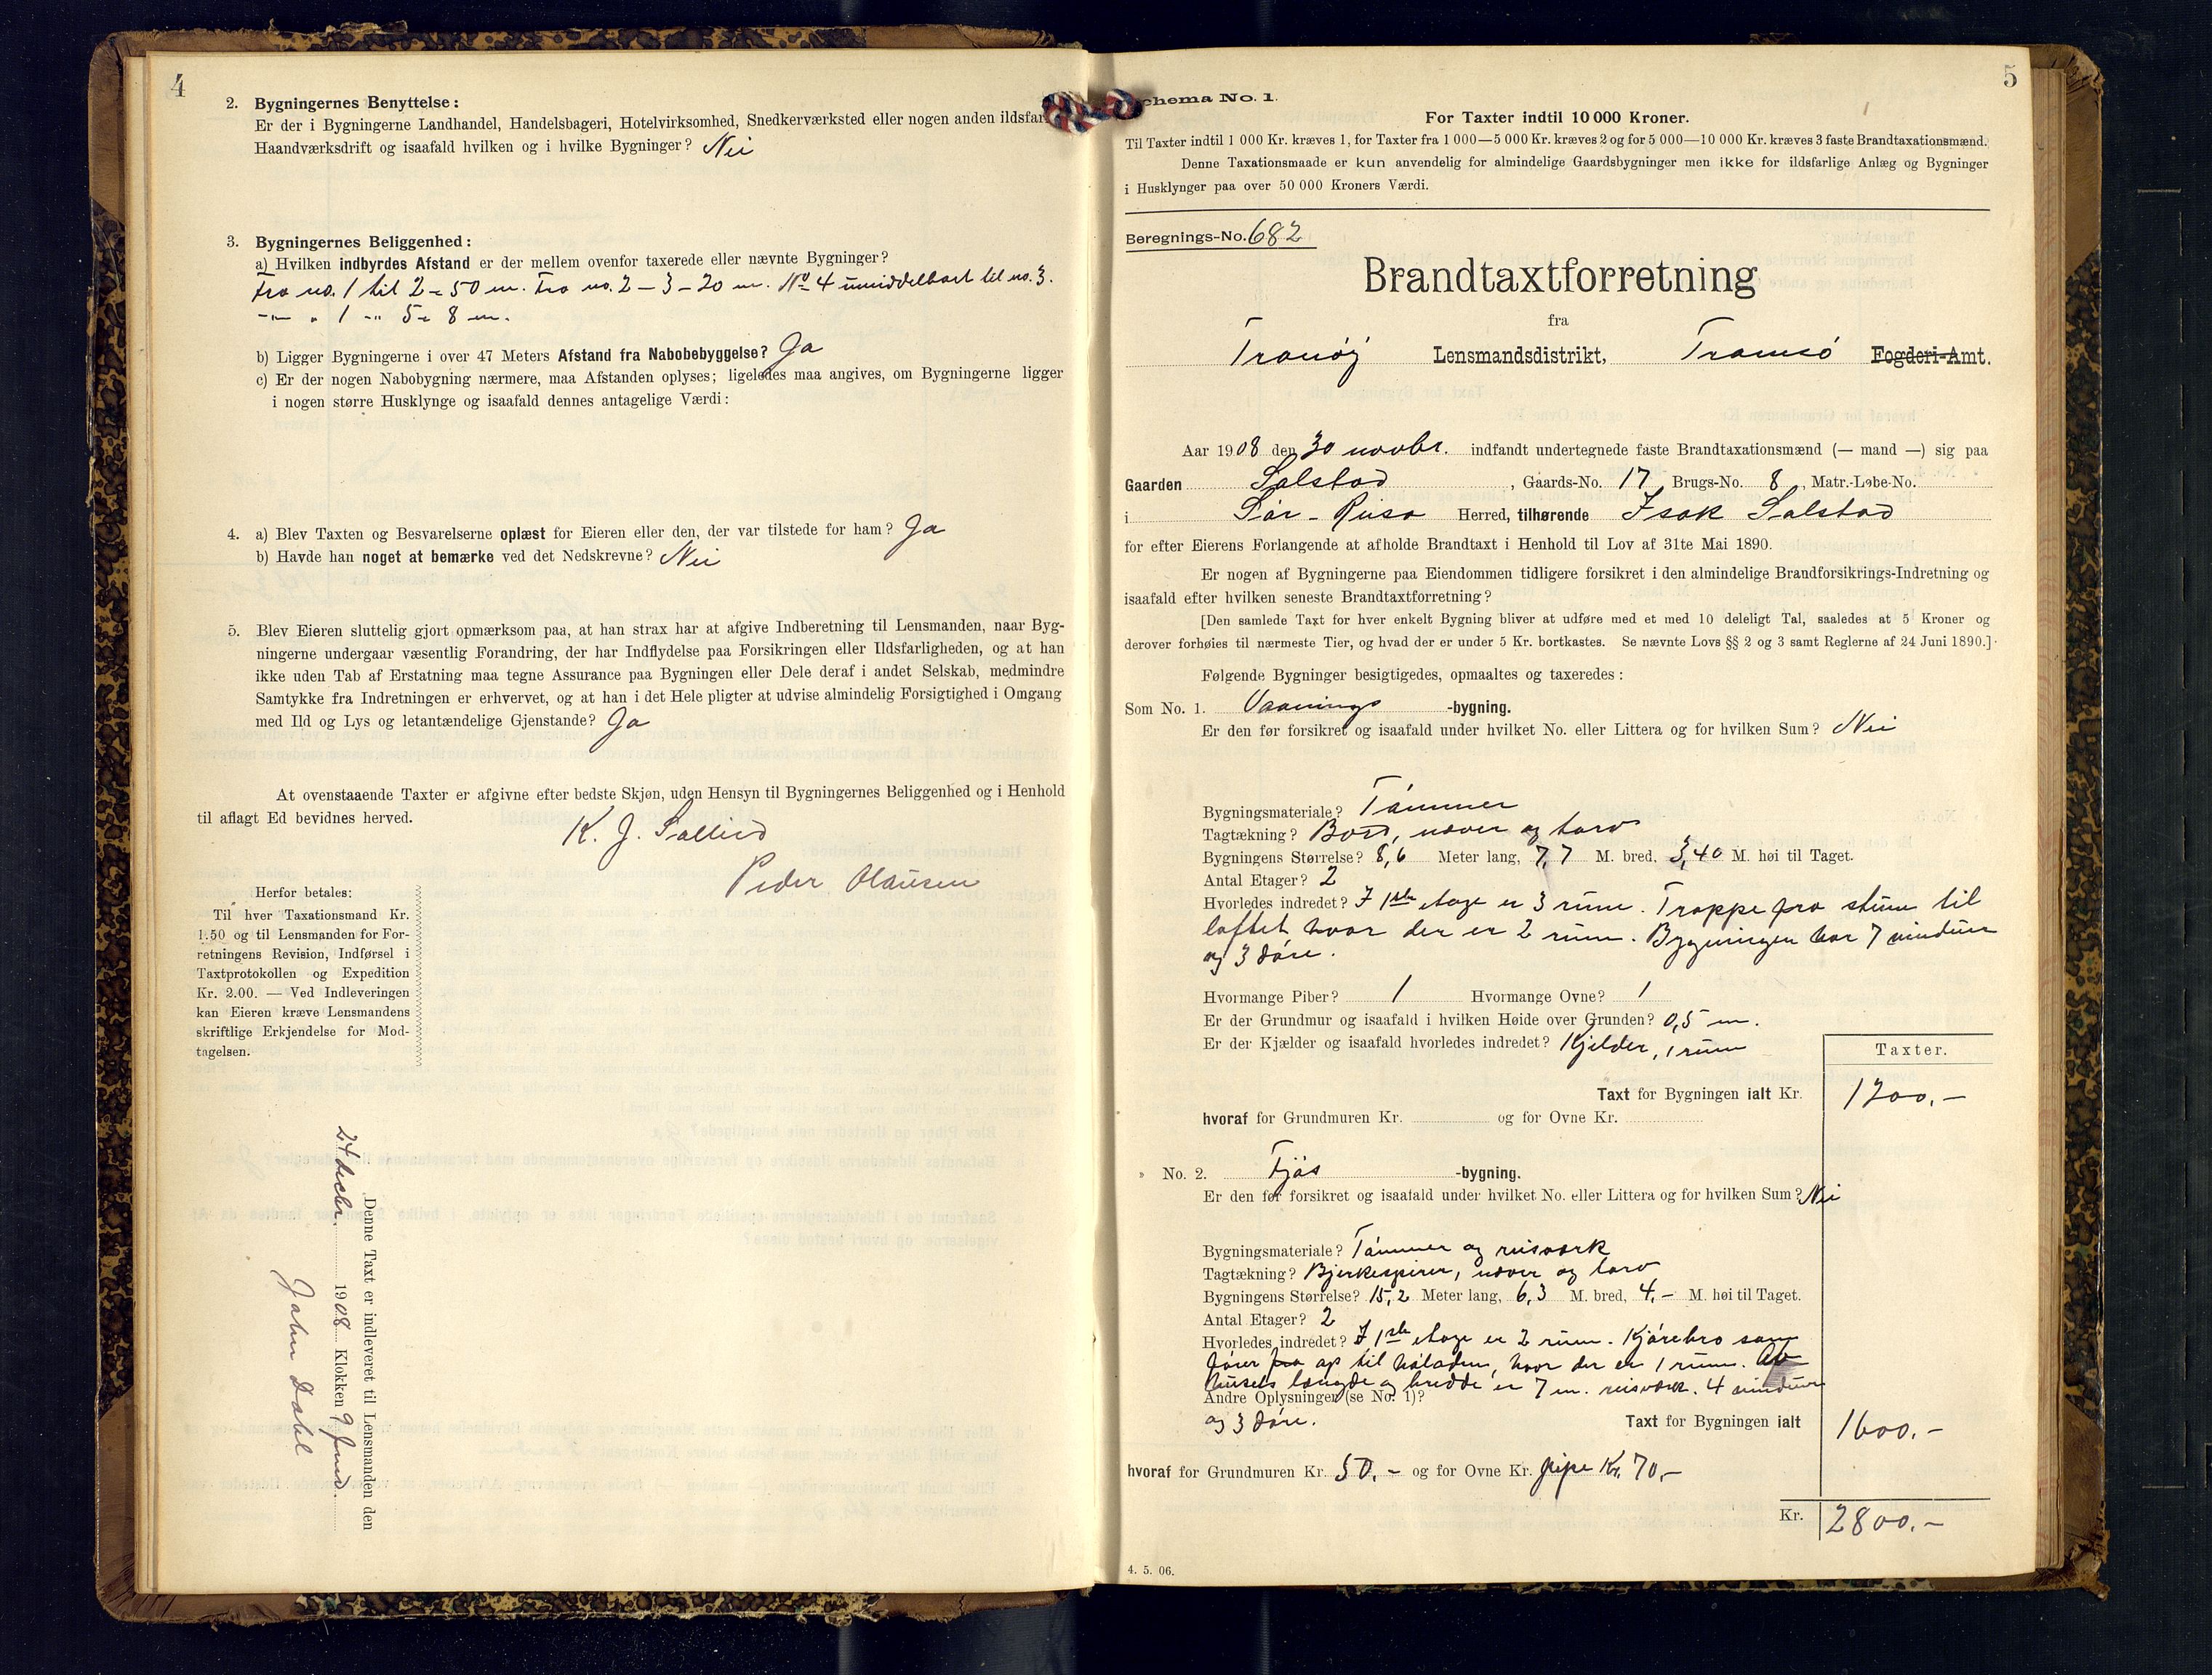 4
2. Bygningernes Benyttelse:
Er der i Bygningerne Landhandel, Handelsbageri, Hotelvirksomhed, Snedkerværksted eller nogen anden ildsfar
Haandværksdrift og isaafald hvilken og i hvilke Bygninger? Nei
3. Bygningernes Beliggenhed:
a) Hvilken indbyrdes Afstand er der mellem ovenfor taxerede eller nævnte Bygninger?
Fra no. 1 til 2 = 50 m. Fra no. 2 - 3 - 20 m. No 4 umiddelbart til no. 3.
-"- " 1 -" 5 = 8 m.
b) Ligger Bygningerne i over 47 Meters Afstand fra Nabobebyggelse? Ja
c) Er der nogen Nabobygning nærmere, maa Afstanden oplyses; ligeledes maa angives, om Bygningerne ligger
i nogen større Husklynge og isaafald dennes antagelige Værdi:
4. a) Blev Taxten og Besvarelserne oplæst for Eieren eller den, der var tilstede for ham? Ja
b) Havde han noget at bemærke ved det Nedskrevne? Nei
5. Blev Eieren sluttelig gjort opmærksom paa, at han strax har at afgive Indberetning til Lensmanden, naar Byg-
ningerne undergaar væsentlig Forandring, der har Indflydelse paa Forsikringen eller Ildsfarligheden, og at han
ikke uden Tab af Erstatning maa tegne Assurance paa Bygningen eller Dele deraf i andet Selskab, medmindre
Samtykke fra Indretningen er erhvervet, og at han i det Hele pligter at udvise almindelig Forsigtighed i Omgang
med Ild og Lys og letantændelige Gjenstande? Ja
At ovenstaaende Taxter er afgivne efter bedste Skjøn, uden Hensyn til Bygningernes Beliggenhed og i Henhold
til aflagt Ed bevidnes herved.
K. J.
Peder Olausen
Herfor betales:
Til hver Taxationsmand Kr.
1.50 og til Lensmanden for For-
retningens Revision, Indførsel i
Taxtprotokollen og Expedition
Kr. 2.00. — Ved Indleveringen
kan Eieren kræve Lensmandens
skriftlige Erkjendelse for Mod-
tagelsen.
Denne Taxt er indleveret til Lensmanden den
24 decbr. 1908 Klokken 9 fmd.
John Dahl
5
chema No. 1.
For Taxter indtil 10 000 Kroner.
Til Taxter indtil 1 000 Kr. kræves 1, for Taxter fra 1 000—5 000 Kr. kræves 2 og for 5 000—10 000 Kr. kræves 3 faste Brandtaxationsmænd.
Denne Taxationsmaade er kun anvendelig for almindelige Gaardsbygninger men ikke for ildsfarlige Anlæg og Bygninger
i Husklynger paa over 50 000 Kroners Værdi.
Beregnings-No. 682
Brandtaxtforretning
fra
Tranöj Lensmandsdistrikt, Tromsö Fogderi-Amt.
Aar 1908 den 30 novbr. indfandt undertegnede faste Brandtaxationsmænd (— mand —) sig paa
Gaarden Solstad, Gaards-No. 17 Brugs-No. 8, Matr.-Løbe-No.
i Sör-Reisa Herred, tilhørende Isak Solstad
for efter Eierens Forlangende at afholde Brandtaxt i Henhold til Lov af 31te Mai 1890.
Er nogen af Bygningerne paa Eiendommen tidligere forsikret i den almindelige Brandforsikrings-Indretning og
isaafald efter hvilken seneste Brandtaxtforretning?
[Den samlede Taxt for hver enkelt Bygning bliver at udføre med et med 10 deleligt Tal, saaledes at 5 Kroner og
derover forhøies til nærmeste Tier, og hvad der er under 5 Kr. bortkastes. Se nævnte Lovs §§ 2 og 3 samt Reglerne af 24 Juni 1890.]
Følgende Bygninger besigtigedes, opmaaltes og taxeredes:
Som No. 1. Vaanings-bygning.
Er den før forsikret og isaafald under hvilket No. eller Littera og for hvilken Sum? Nei
Bygningsmateriale? Tömmer
Tagtækning? Bord, never og torv
Bygningens Størrelse? 8,6 Meter lang, 7,7 M. bred, 3,40 M. høi til Taget.
Antal Etager? 2
Hvorledes indredet? I 1ste etage er 3 rum. Trappe fra stuen til
loftet hvor der er 2 rum. Bygningen har 7 vinduer
og 3 döre.
Hvormange Piber? 1 Hvormange Ovne? 1
Er der Grundmur og isaafald i hvilken Høide over Grunden? 0,5 m.
Er der Kjælder og isaafald hvorledes indredet? Kjelder, 1 rum
Taxter.
Taxt for Bygningen ialt Kr. 1200.-
hvoraf for Grundmuren Kr. og for Ovne Kr.
» No. 2. Fjös-bygning.
Er den før forsikret og isaafald under hvilket No. eller Littera og for hvilken Sum? Nei
Bygningsmateriale? Tömmer og reisværk
Tagtækning? Bjerkespirer, never og torv
Bygningens Størrelse? 15,2 Meter lang, 6,3 M. bred, 4,- M. høi til Taget.
Antal Etager? 2
Hvorledes indredet? I 1ste etage er 2 rum. Kjörebro som
förer fra op til höladen, hvor der er 1 rum. Av
husets længde og bredde er 7 m. reisværk. 4 vinduer
Andre Oplysninger (se No. 1)?
og 3 döre. Taxt for Bygningen ialt 1600.-
hvoraf for Grundmuren Kr. 50.- og for Ovne Kr. pipe Kr. 70,-
Kr. 2800.-
4. 5. 06.